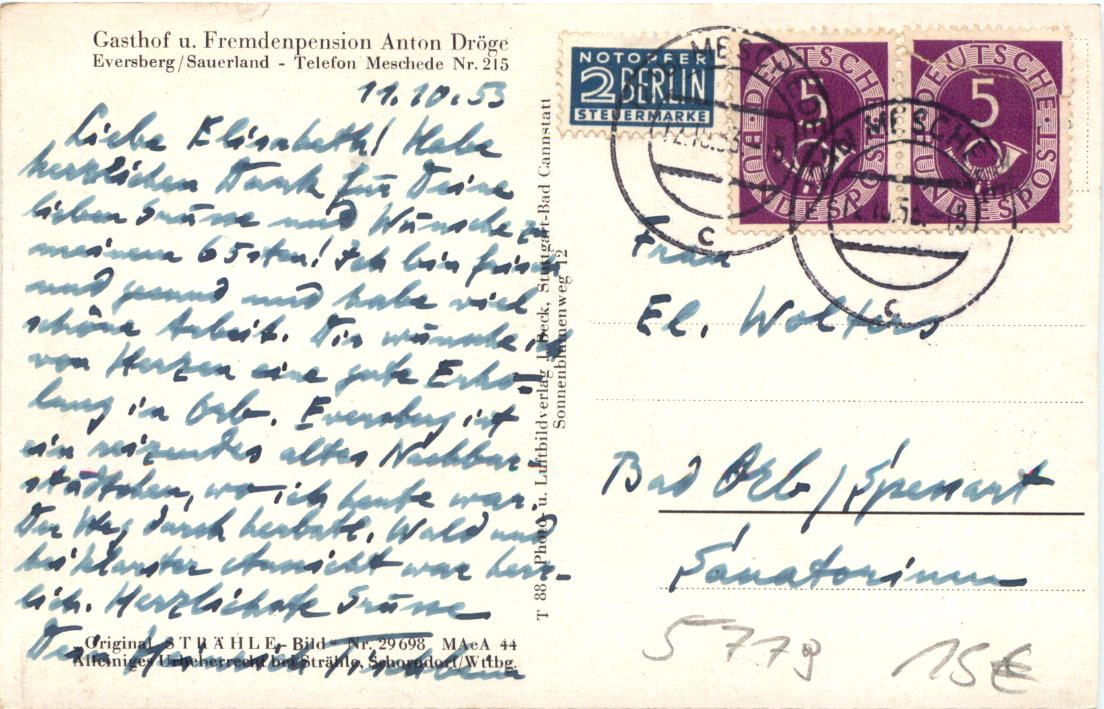 Gasthof u. Fremdenpension Anton Dröge
Eversberg/Sauerland - Telefon Meschede Nr. 215
11.10.53
Liebe Elisabeth! Habe
herzlichen Dank für Deine
lieben Grüsse und Wünsche zu
meinem 65sten! Ich bin frisch
und gesund und habe viel
schöne Arbeit. Dir wünsche ich
von Herzen eine gute Erho-
lung in Orb. Eversberg ist
ein reizendes altes Nachbar-
städtchen, wo ich heute war.
Der Weg durch herbstl. Wald und
bei klarster Aussicht war herr-
lich. Herzlichste Grüsse
Dein Heinrich
Original STRÄHLE-Bild Nr. 29698 MAeA 44
Alleiniges Urheberrecht bei Strähle, Schorndorf/Wttbg.
T 88 Photo- u. Luftbildverlag J. Beck, Stuttgart-Bad Cannstatt
Sonnenblumenweg 12
NOTOPFER
2 BERLIN
STEUERMARKE
5
DEUTSCHE BUNDESPOST
5
DEUTSCHE BUNDESPOST
MESCHEDE
12.10.53
c
MESCHEDE
12.10.53
c
Frau
El. Wolters
Bad Orb/Spessart
Sanatorium
5779
15€